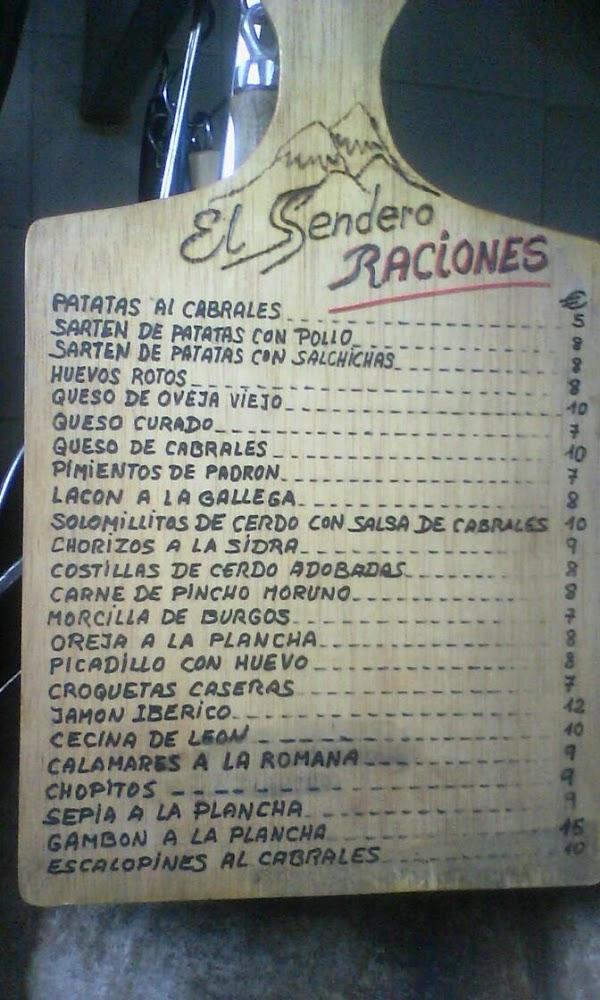 El Sendero
RACIONES
€
PATATAS Al CABRALES 5
SARTEN DE PATATAS CON POLLO 8
SARTEN DE PATATAS CON SALCHICHAS 8
HUEVOS ROTOS 8
QUESO DE OVEJA VIEJO 10
QUESO CURADO 7
QUESO DE CABRALES 10
PIMIENTOS DE PADRON 7
LACON A LA GALLEGA 8
SOLOMILLITOS DE CERDO CON SALSA DE CABRALES 10
CHORIZOS A LA SIDRA 9
COSTILLAS DE CERDO ADOBADAS 8
CARNE DE PINCHO MORUNO 8
MORCILLA DE BURGOS 7
OREJA A LA PLANCHA 8
PICADILLO CON HUEVO 8
CROQUETAS CASERAS 7
JAMON IBERICO 12
CECINA DE LEON 10
CALAMARES A LA ROMANA 9
CHOPITOS 9
SEPIA A LA PLANCHA 9
GAMBON A LA PLANCHA 15
ESCALOPINES AL CABRALES 10